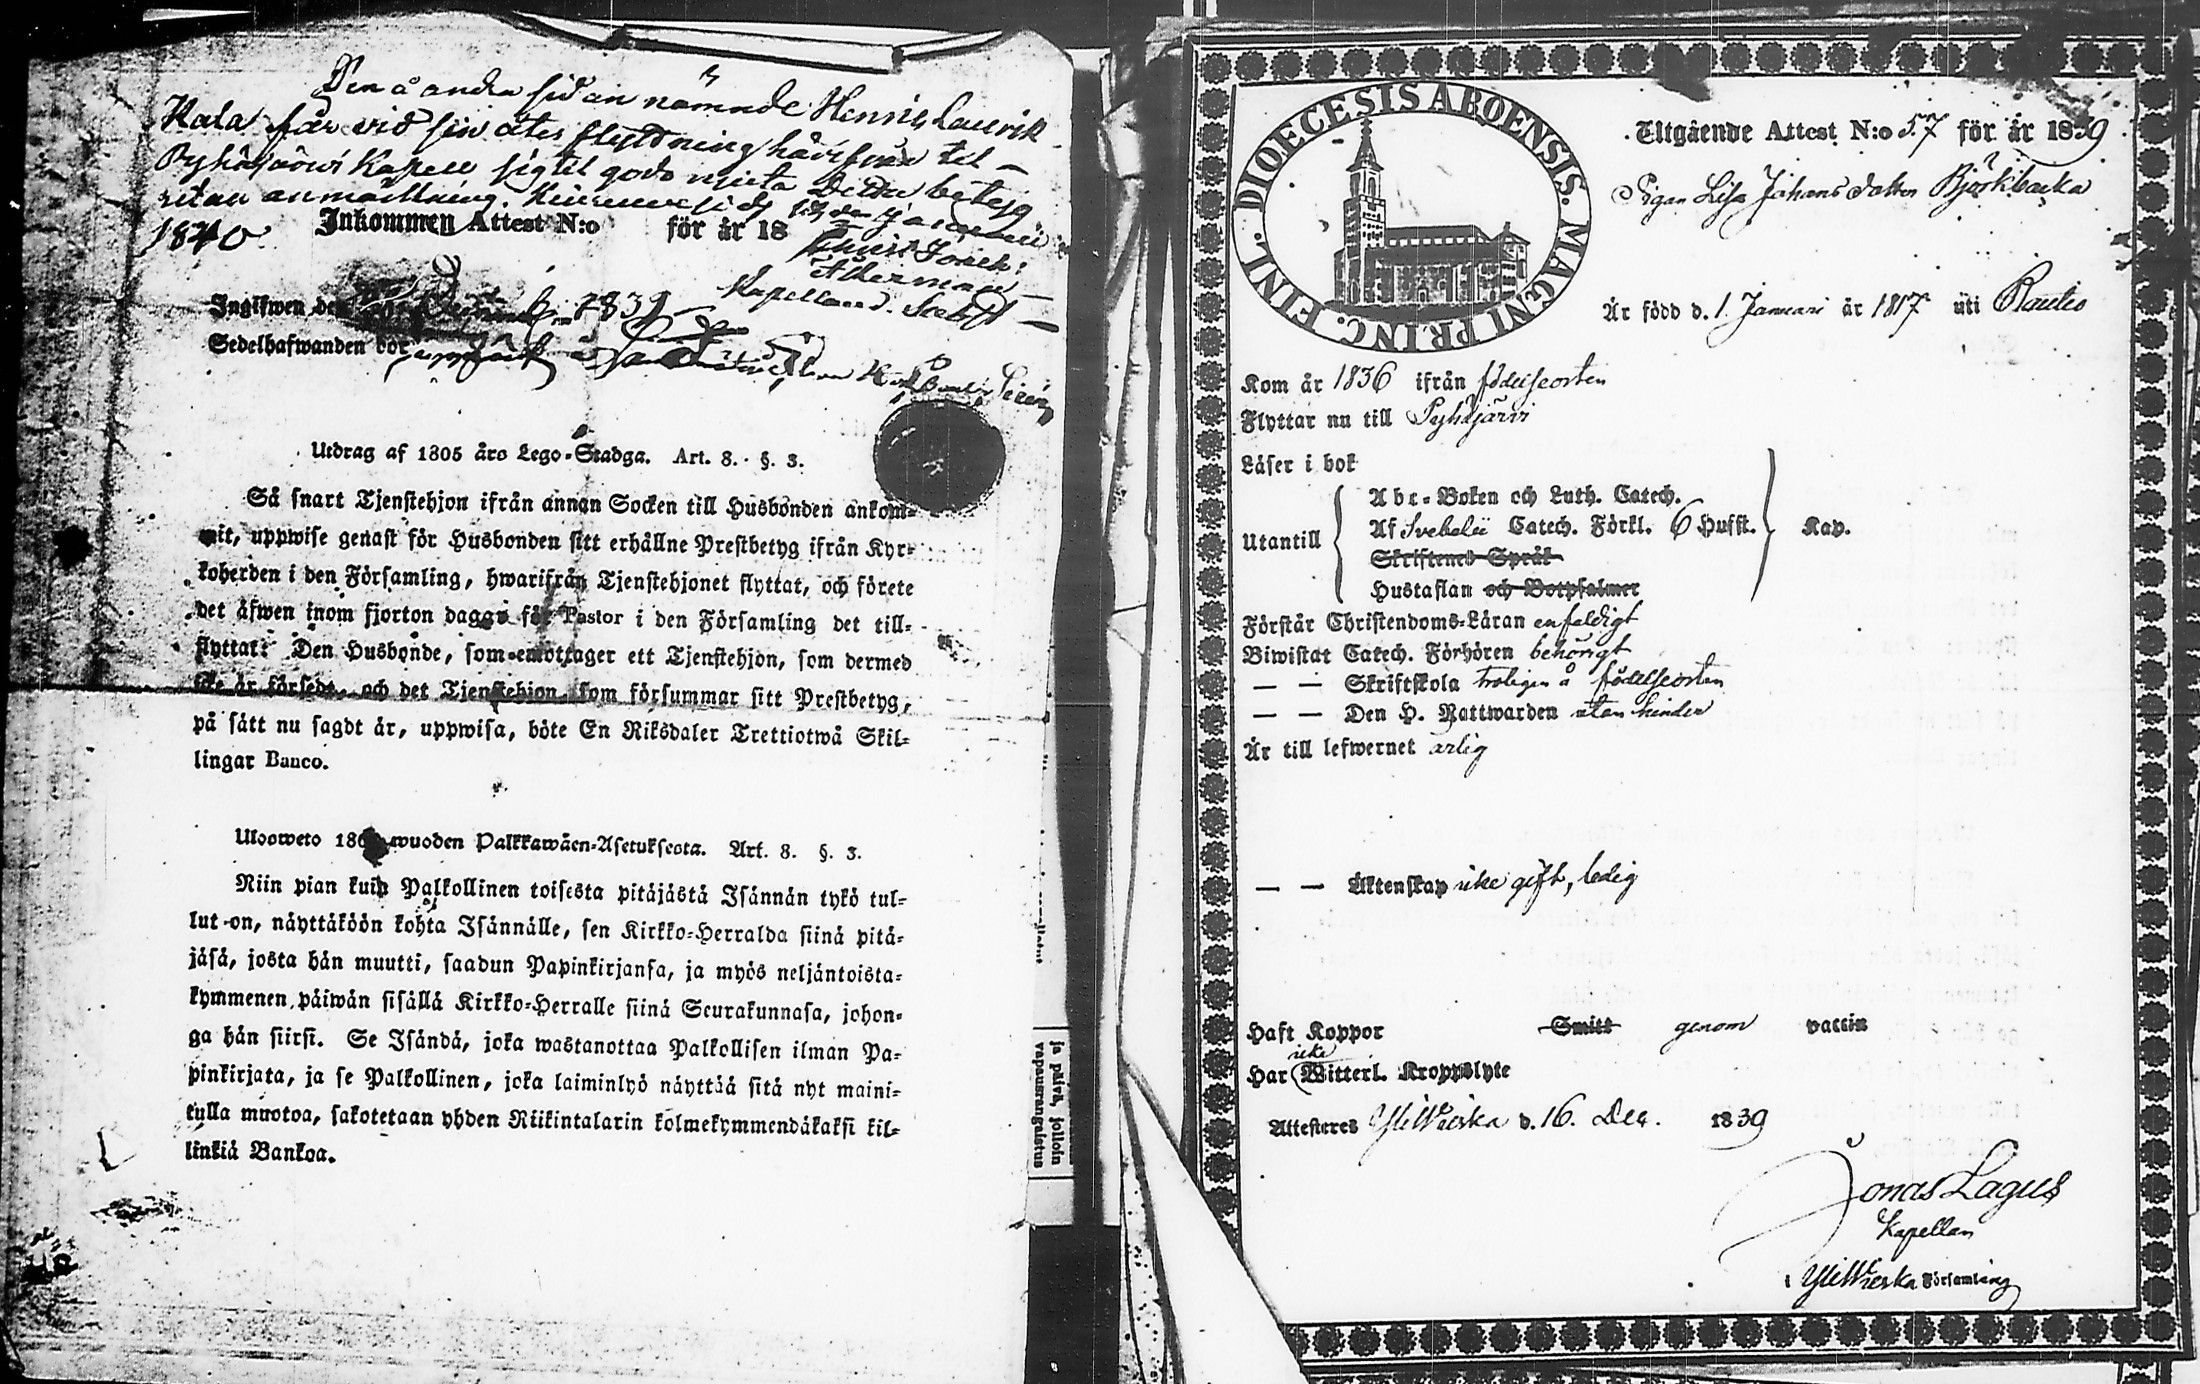 Den å andra sidan nämnde Henric Laurik
Kala får vid sin åter flyttning härifrån til
Pyhäjärvi Kapell sig til godo njuta Detta betyg
utan anmälning. den Januarii
1840
Inkommen Attest N:o för år 18
Kapellan
Ingifwen den 1839
Sedelhafwanden bor
Utdrag af 1805 års Lego-Stadga. Art. 8. §. 3.
Så snart Tjenstehjon ifrån annan Socken till Husbonden ankom-
mit, uppwise genast för Husbonden sitt erhållne Prestbetyg ifrån Kyr-
koherden i den Församling, hwarifrån Tjenstehjonet flyttat, och förete
det äfwen inom fjorton dagar för Pastor i den Församling det till-
flyttat: Den Husbonde, som emottager ett Tjenstehjon, som dermed
icke är försedt, och det Tjenstehjon som försummar sitt Prestbetyg,
på sätt nu sagdt är, uppwisa, böte En Riksdaler Trettiotwå Skil-
lingar Banco.
Ulosweto 180 wuoden Palkkawäen-Asetuksesta. Art. 8. §. 3.
Niin pian kuin Palkollinen toisesta pitäjästä Isännän tykö tul-
lut on, näyttäköön kohta Isännälle, sen Kirkko-Herralda siinä pitä-
jäsä, josta hän muutti, saadun Papinkirjansa, ja myös neljäntoista-
kymmenen päiwän sisällä Kirkko-Herralle siinä Seurakunnasa, johon-
ga hän siirsi. Se Isändä, joka wastanottaa Palkollisen ilman Pa-
pinkirjata, ja se Palkollinen, joka laiminlyö näyttää sitä nyt maini-
tulla muotoa, sakotetaan yhden Riikintalarin kolmekymmendäkaksi kil-
linkiä Bankoa.
ja päivä, jolloin
vapausrangaistus
DIOECESIS ABOENSIS. MAGNI PRINC. FINL.
Utgående Attest N:o 57 för år 1839
Pigan Lisa Johans dotter Björkbacka
Är född d. 1 Januari år 1817 uti Rautio
Kom år 1836 ifrån födelseorten
Flyttar nu till Pyhäjärvi
Läser i bok
Utantill
Abc-Boken och Luth. Catech.
Af Svebelii Catech. Förkl. 6 Hufst. Kap.
Skriftenes Språk
Hustaflan och Botpsalmer
Förstår Christendoms-Läran enfaldigt
Biwistat Catech. Förhören behörigt
— — Skriftskola troligen å födelseorten
— — Den H. Nattwarden utan hinder
Är till lefwernet ärlig
— — Äktenskap icke gift, ledig
Haft Koppor Smitt genom vaccin
icke
Har Witterl. Kroppslyte
Attesteres YliWieska d. 16. Dec. 1839
Jonas Lagus
Kapellan
i YliWieska Församling